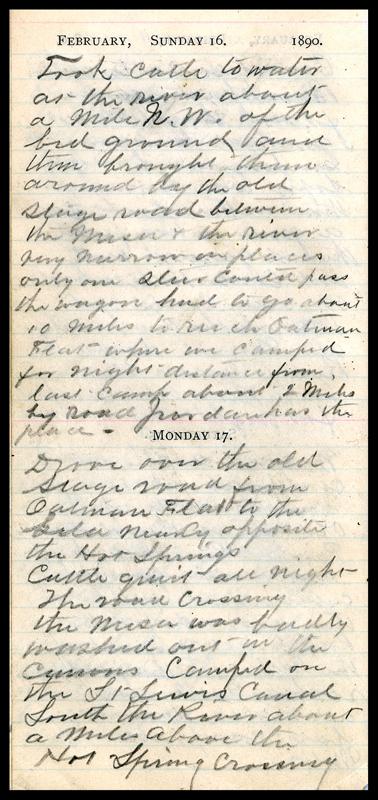 FEBRUARY, SUNDAY 16. 1890.
Took cattle to water
at the river about
a Mile N. W. of the
bed ground and
then brought them
around by the old
stage road between
the Mesa & the river
very narrow in places
only one steer could pass
the wagon had to go about
10 miles to reach Oatman
Flat where we camped
for night distance from
last camp about 2 Miles
by road Jordan has the
place -
MONDAY 17.
Drove over the old
Stage road from
Oatman Flat to the
Gila nearly opposite
the Hot Springs
Cattle quiet all night
The road crossing
the Mesa was badly
washed out in the
Camped on
the St Lewis Canal
South the River about
a Mile above the
Hot Spring Crossing